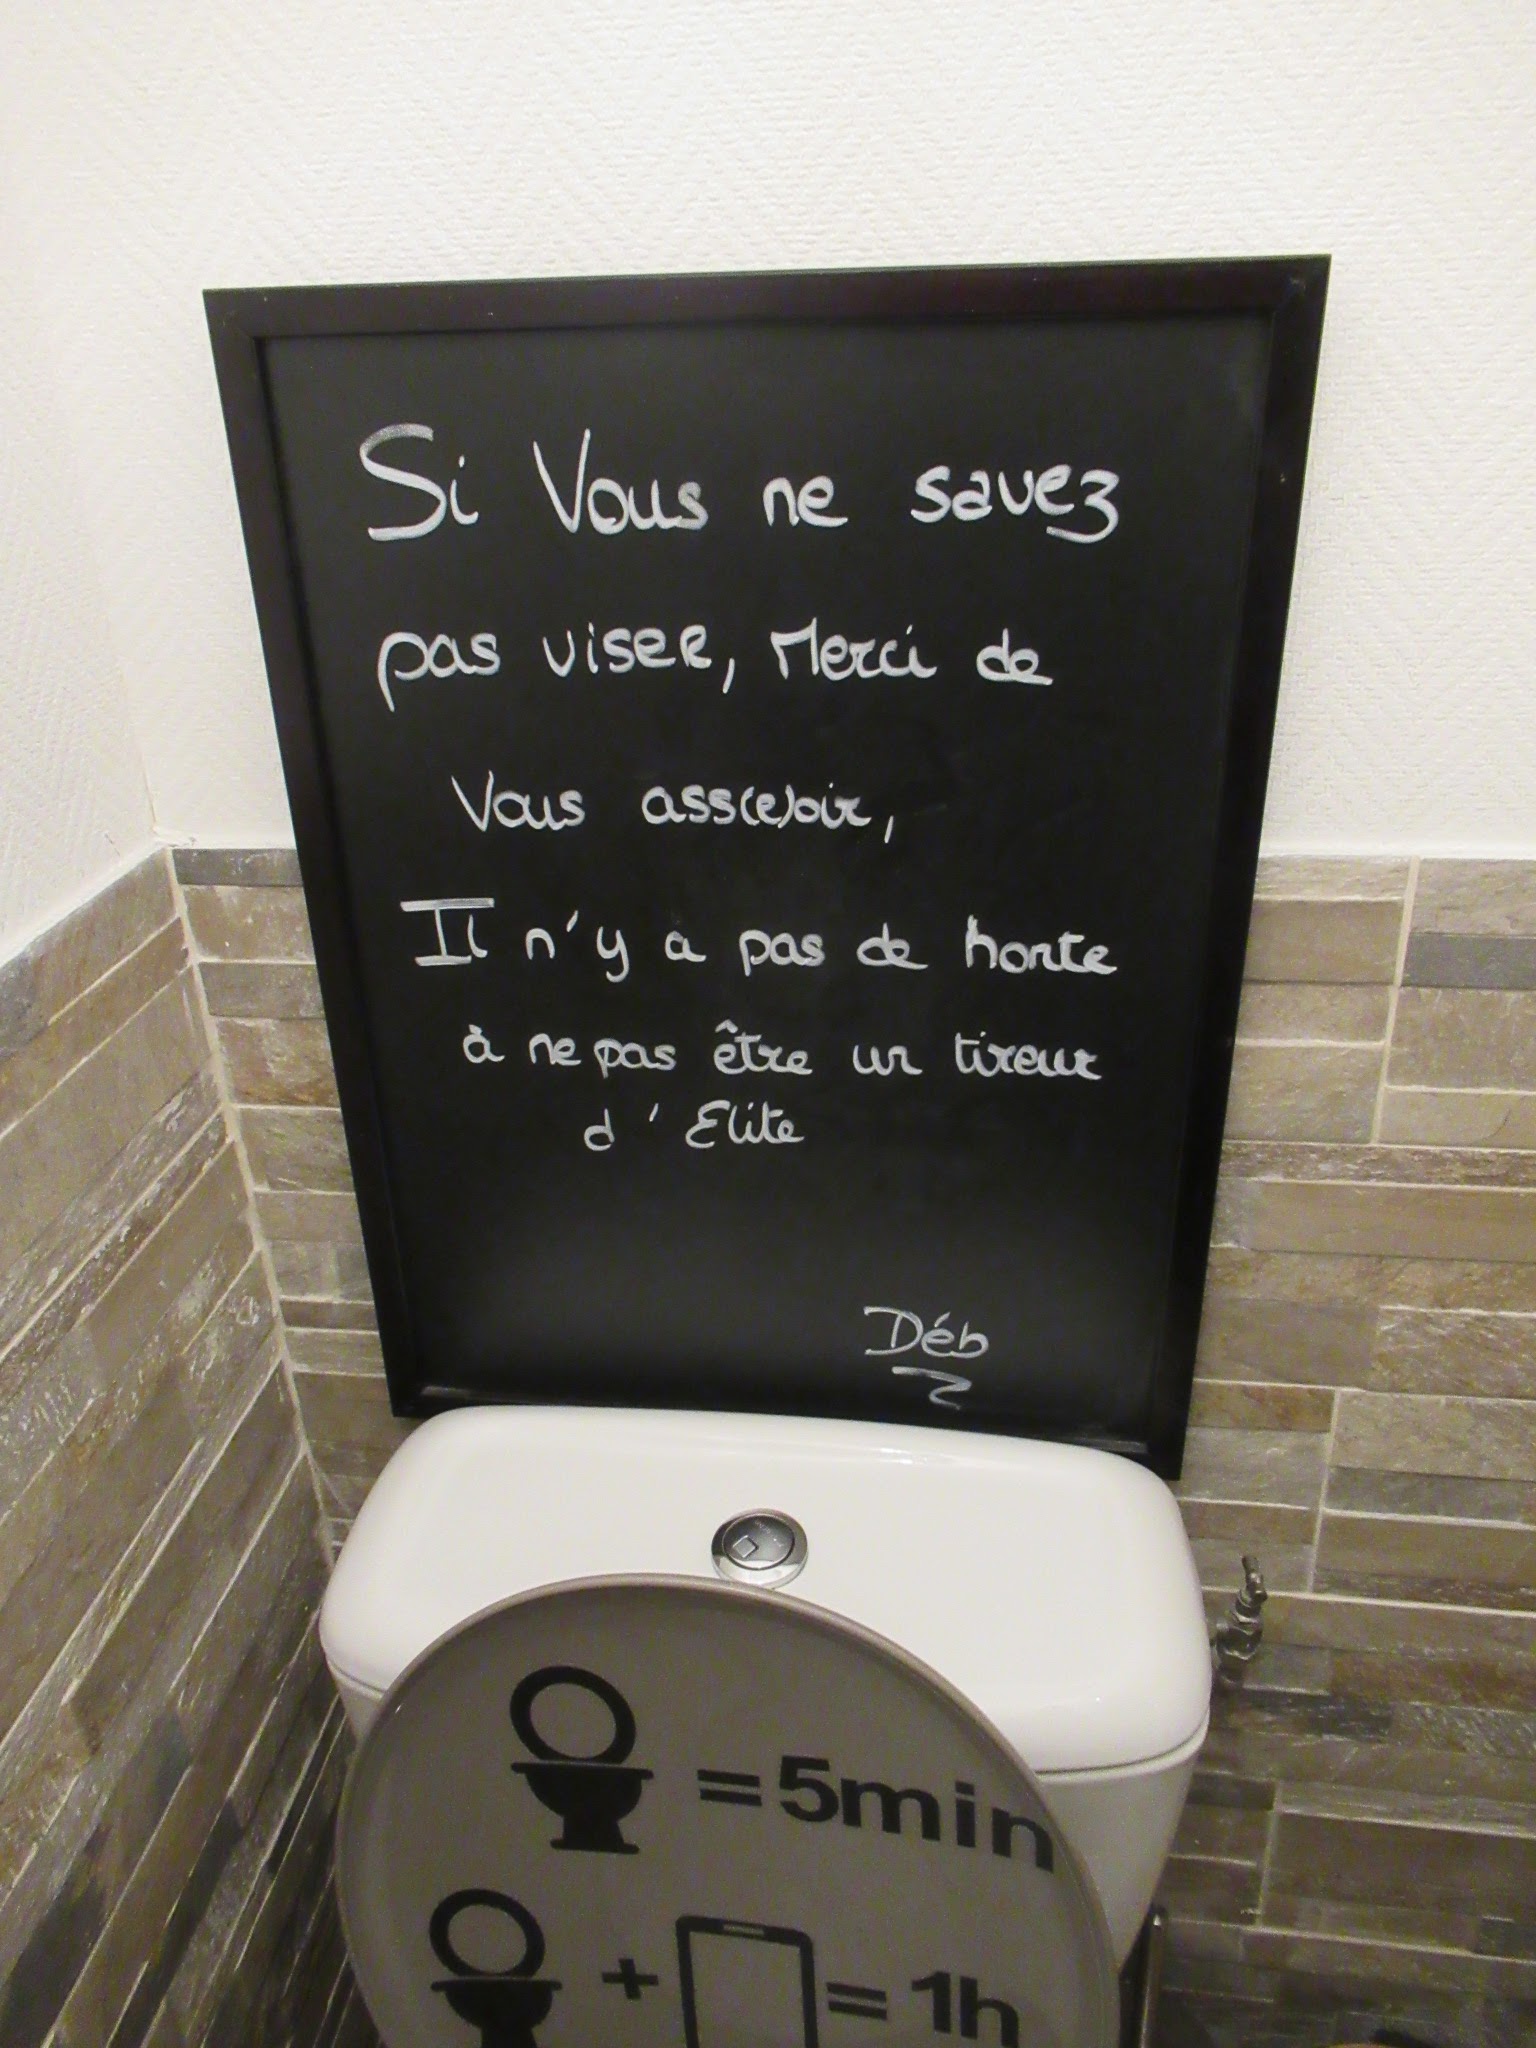 Si Vous ne savez
pas viser, Merci de
Vous ass(e)oir,
Il n'y a pas de honte
à ne pas être un tireur
d'Elite
Déb
=5min
+ =1h